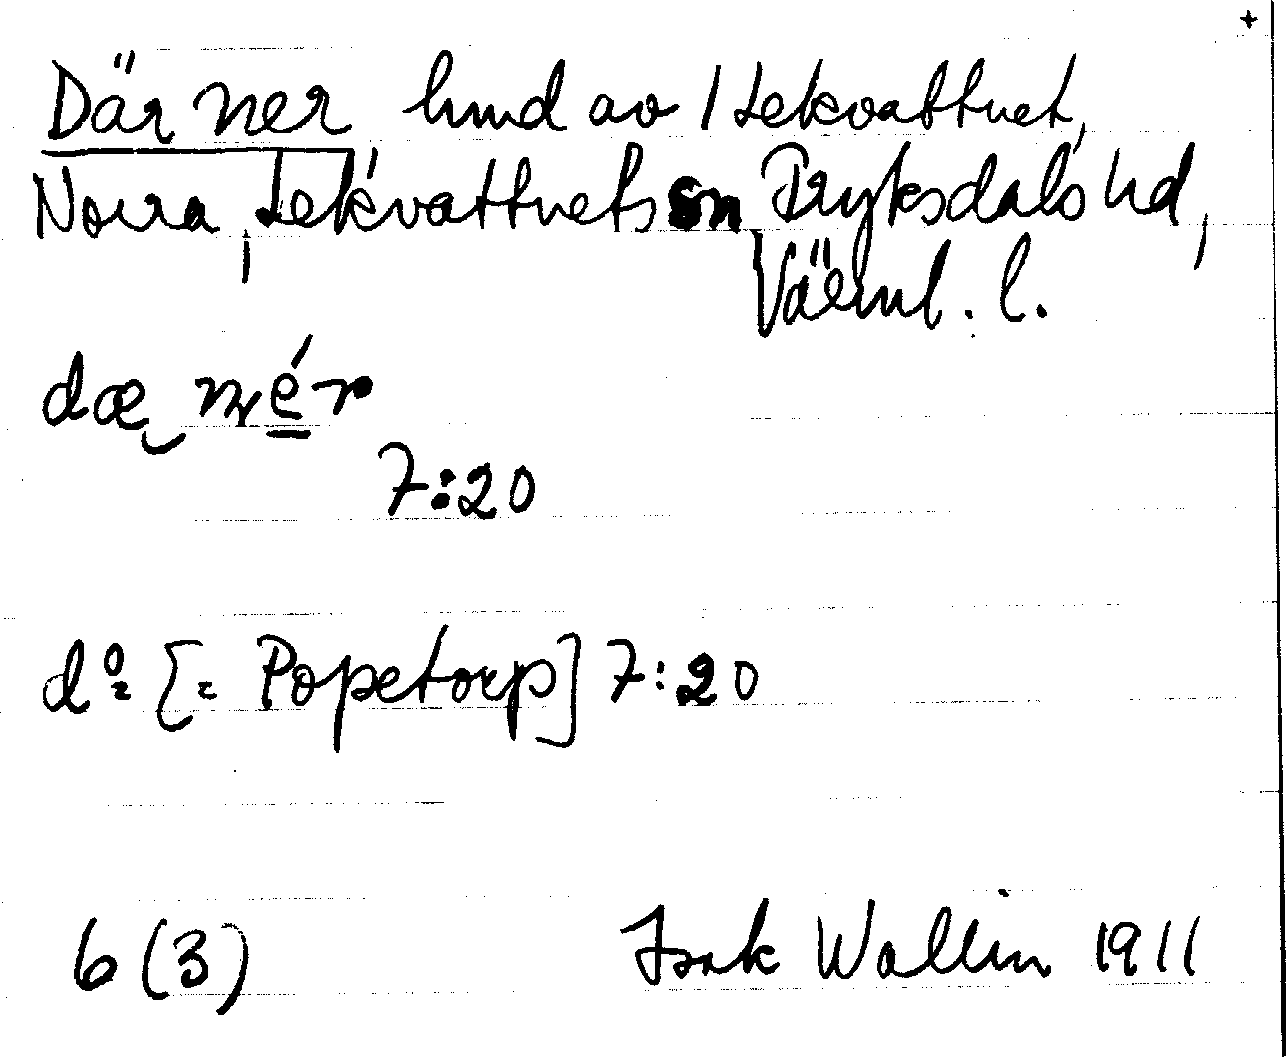 +
Där ner hmd av 1 Lekvattnet,
Norra, Lekvattnets sn Fryksdals hd,
Värml. l.
dœ nér
7:20
do [= Popetorp] 7:20
6 (3) Isak Wallin 1911